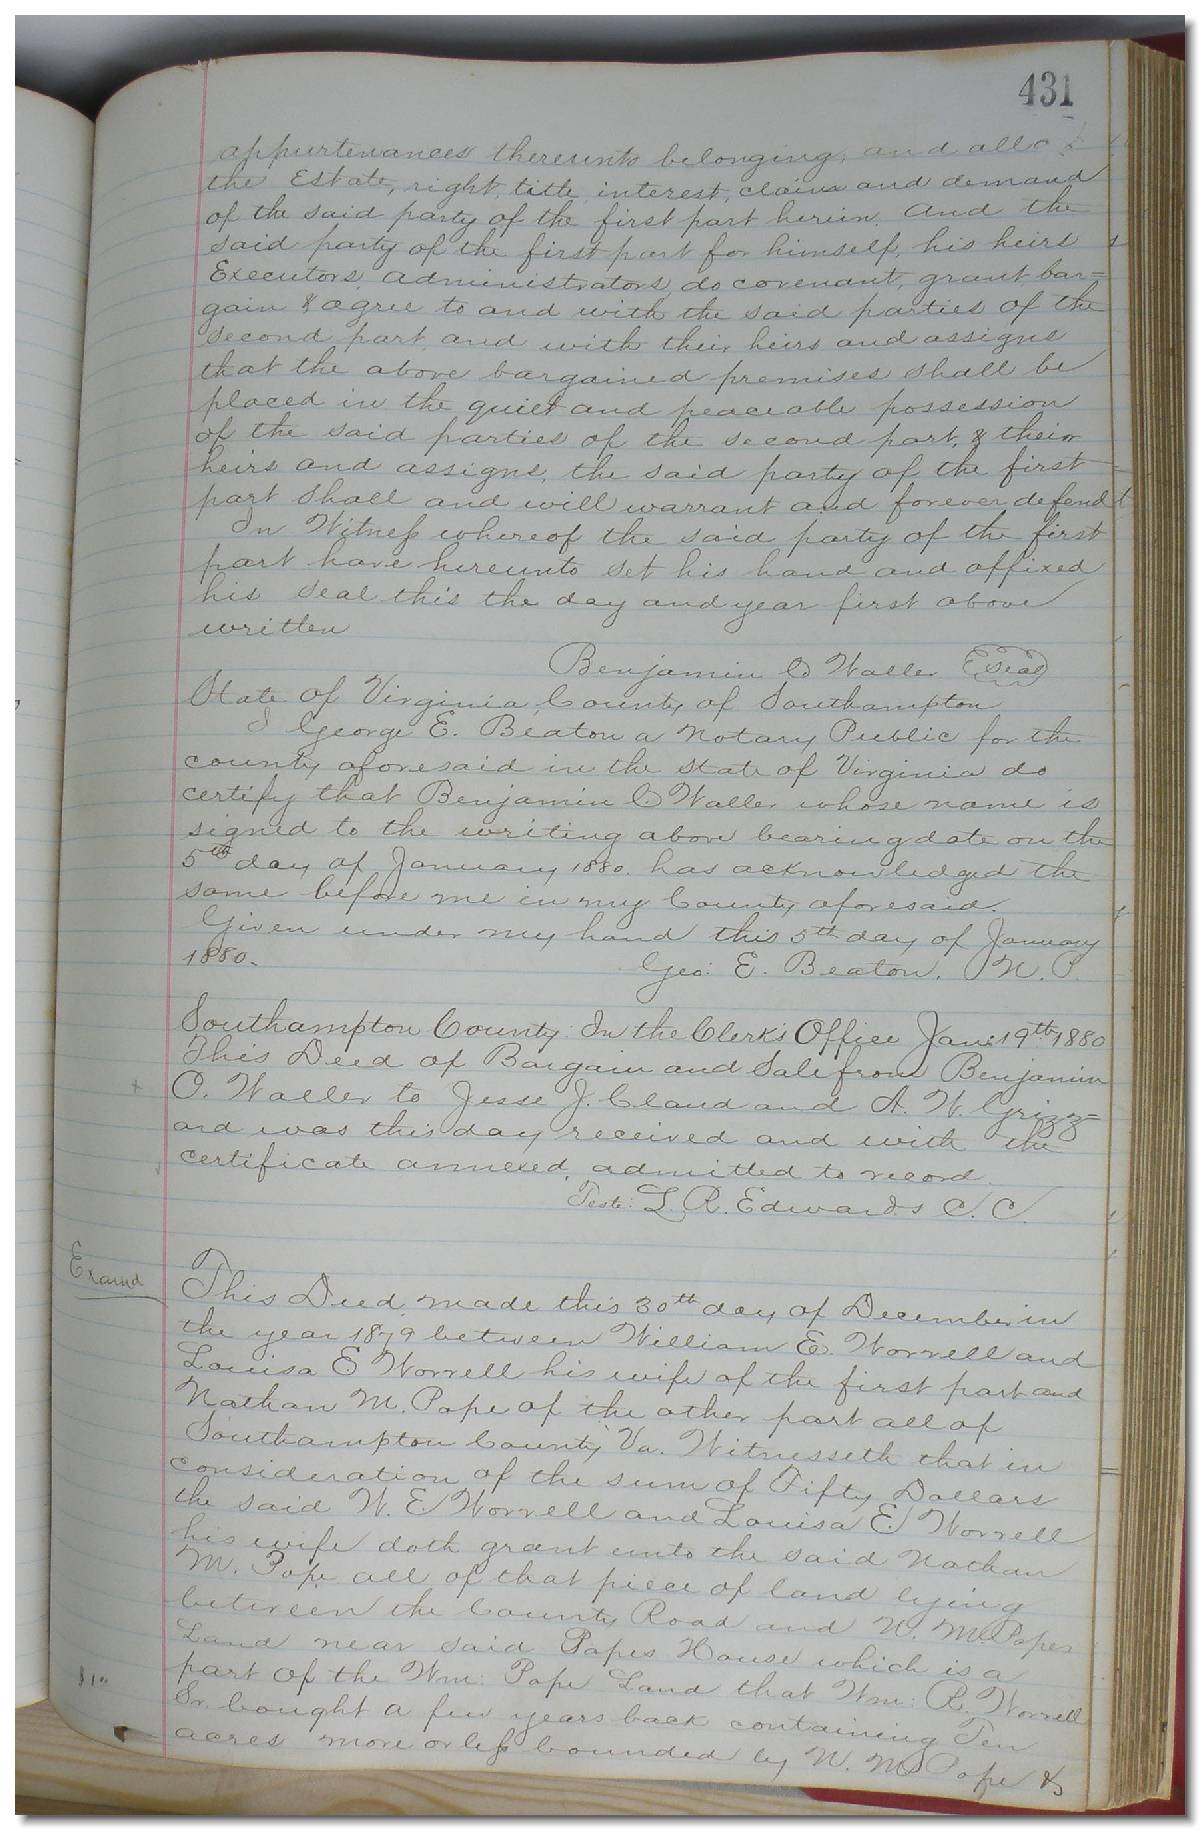 431
appurtenances thereunto belonging, and all
the Estate, right, title, interest, claim and demand
of the said party of the first part herein. And the
said party of the first part for himself, his heirs
Executors, administrators, do covenant, grant bar=
gain & agree to and with the said parties of the
second part and with their heirs and assigns
that the above bargained premises shall be
placed in the quiet and peaceable possession
of the said parties of the second part, & their
heirs and assigns, the said party of the first
part shall and will warrant and forever defend
In Witness whereof the said party of the first
part have hereunto set his hand and affixed
his seal this the day and year first above
written
Benjamin O Waller Seal
State of Virginia, County of Southampton
I George E. Beaton a Notary Public for the
county aforesaid in the State of Virginia do
certify that Benjamin O Waller whose name is
signed to the writing above bearing date on the
5th day of January 1880. has acknowledged the
same before me in my County aforesaid.
Given under my hand this 5th day of January
1880. Geo: E. Beaton. N. P.
Southampton County: In the Clerk's Office Jan: 19th 1880
This Deed of Bargain and Sale from Benjamin
O. Waller to Jesse J. Claud and A. W. Grizz=
ard was this day received and with the
certificate annexed, admitted to record.
Teste: L. R. Edwards C. C.
Examd
This Deed made this 30th day of December in
the year 1879 between William E. Worrell and
Louisa E Worrell his wife of the first part and
Nathan M. Pope of the other part all of
Southampton County Va. Witnesseth that in
consideration of the sum of Fifty Dollars
the said W. E. Worrell and Louisa E. Worrell
his wife doth grant unto the said Nathan
M. Pope all of that piece of land lying
between the County Road and N. M. Popes
Land near said Popes House which is a
part of the Wm: Pope Land that Wm: R. Worrell
Sr. bought a few years back containing Ten
acres more or less bounded by N. M. Pope &